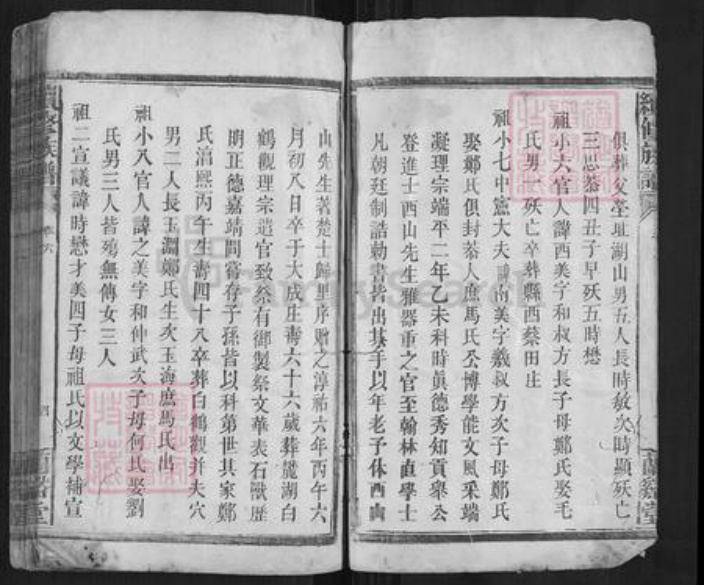 續修族譜
俱葬父塋址湖山男五人長時敏次時顯殀亡
三思恭四丑子早殀五時懋
祖小六官人諱西美字和叔方長子母鄭氏娶毛
氏男一殀亡卒葬縣西蔡田庄
祖小七中憲大夫諱南美字羲叔方次子母鄭氏
娶鄭氏俱封恭人庶馬氏公博學能文風采端
凝理宗端平二年乙未科時眞德秀知貢舉公
登進士西山先生雅器重之官至翰林直學士
凡朝廷制誥勅書皆出其手以年老予休西山
蘭谿堂
山先生著楚士歸里序贈之淳祐六年丙午六
月初八日卒于大成庄壽六十六歲葬麗湖白
鶴觀理宗遣官致祭有御製祭文華表石獸歷
明正德嘉靖間嘗存子孫皆以科第世其家鄭
氏淳熙丙午生壽四十八卒葬白鶴觀并夫穴
男二人長玉淵鄭氏生次玉海庶馬氏出
祖小八官人諱之美字和仲武次子母何氏娶劉
氏男三人皆殤無傳女三人
祖二宣議諱時懋才美四子母祖氏以文學補宣
族譜
卷六
四
蘭谿堂
FamilySearch